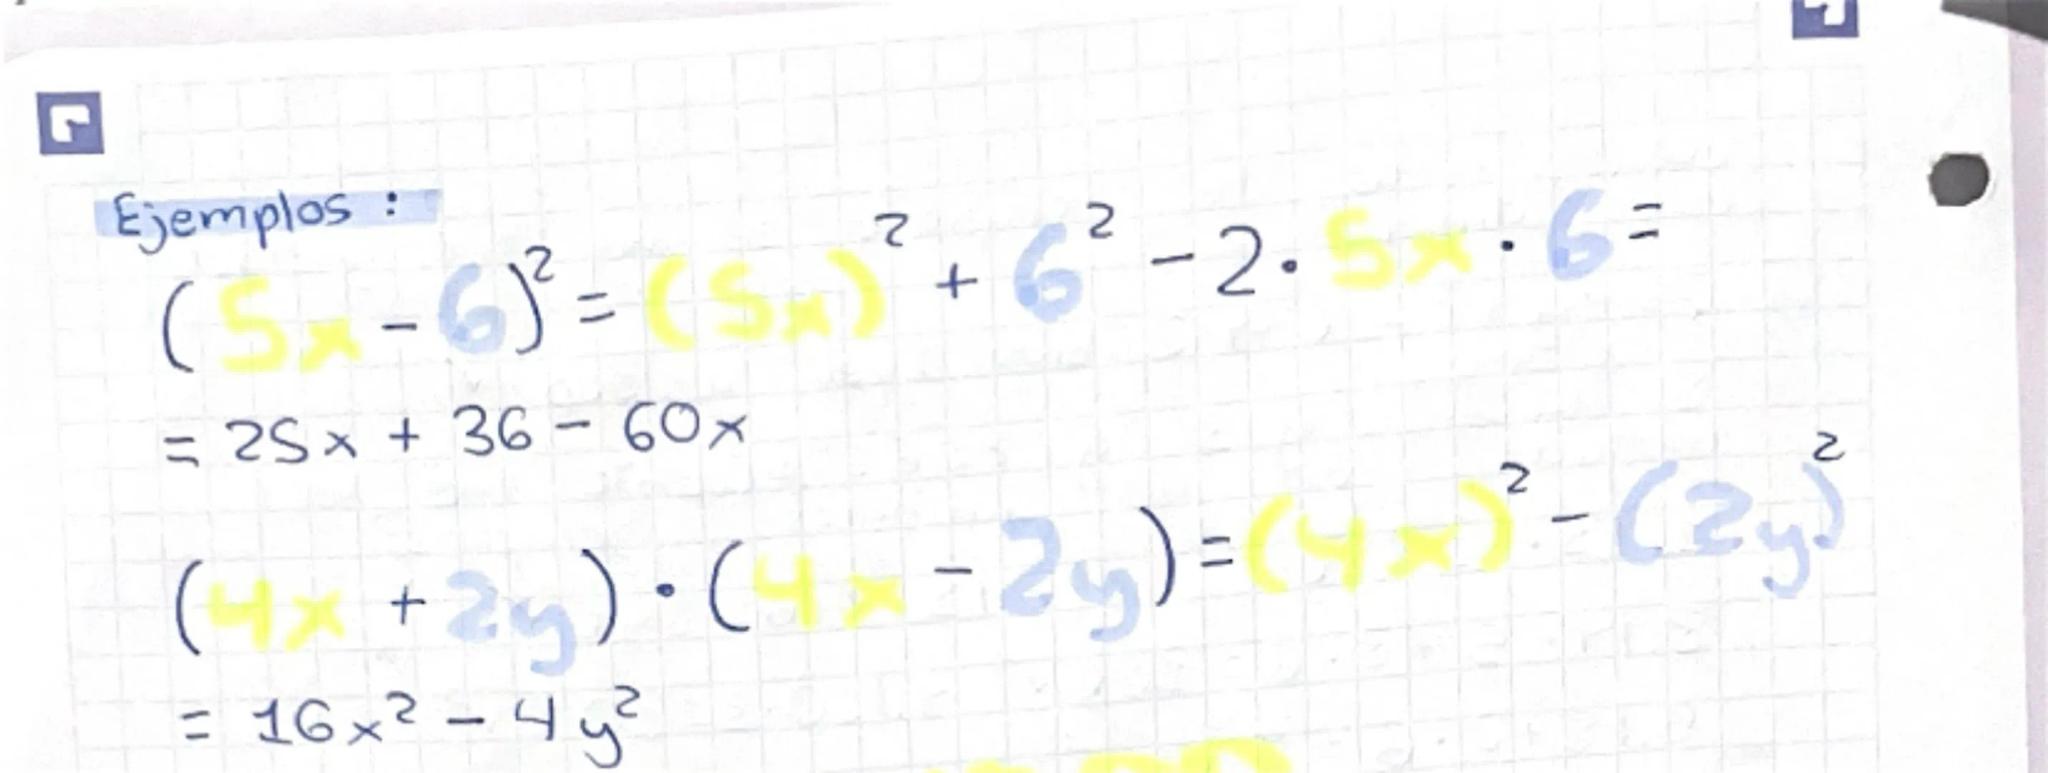 Ejemplos:
(5x - 6)² = (5x)² + 6² - 2 · 5x · 6 =
= 25x + 36 - 60x
(4x + 2y) · (4x - 2y) = (4x)² - (2y)²
= 16x² - 4y²